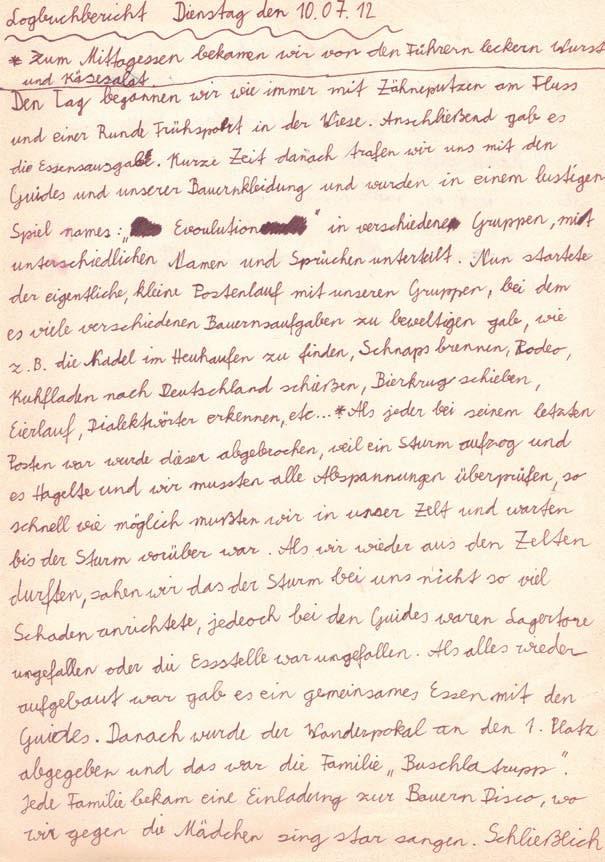 Logbuchbericht Dienstag den 10.07.12
* Zum Mittagessen bekamen wir von den Führern leckern Wurst
und Käsesalat.
Den Tag begannen wir wie immer mit Zähneputzen am Fluss
und einer Runde Frühsport in der Wiese. Anschließend gab es
die Essensausgabe. Kurze Zeit danach trafen wir uns mit den
Guides und unserer Bauernkleidung und wurden in einem lustigen
Spiel names: „Evoulution" in verschiedene Gruppen, mit
unterschiedlichen Namen und Sprüchen unterteilt. Nun startete
der eigentliche, kleine Postenlauf mit unseren Gruppen, bei dem
es viele verschiedenen Bauernsaufgaben zu beveltigen gab, wie
z.B. die Nadel im Heuhaufen zu finden, Schnaps brennen, Rodeo,
Kuhfladen nach Deutschland schießen, Bierkrug schieben,
Eierlauf, Dialektwörter erkennen, etc...* Als jeder bei seinem letzten
Posten war wurde dieser abgebrochen, weil ein Sturm aufzog und
es Hagelte und wir mussten alle Abspannungen überprüfen, so
schnell wie möglich mußten wir in unser Zelt und warten
bis der Sturm vorüber war. Als wir wieder aus den Zelten
durften, sahen wir das der Sturm bei uns nicht so viel
Schaden anrichtete, jedeoch bei den Guides waren Lagertore
umgefallen oder die Essstelle war umgefallen. Als alles wieder
aufgebaut war gab es ein gemeinsames Essen mit den
Guides. Danach wurde der Wanderpokal an den 1. Platz
abgegeben und das war die Familie „Buschla trupp".
Jede Familie bekam eine Einladung zur Bauern Disco, wo
wir gegen die Mädchen sing star sangen. Schließlich